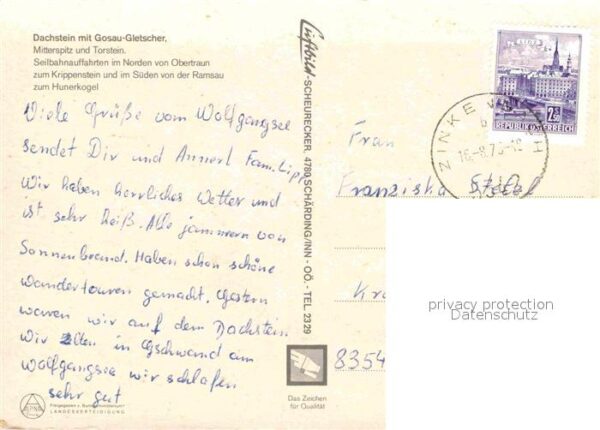 Dachstein mit Gosau-Gletscher,
Mitterspitz und Torstein.
Seilbahnauffahrten im Norden von Obertraun
zum Krippenstein und im Süden von der Ramsau
zum Hunerkogel
Viele Grüße vom Wolfgangsee
sendet Dir und Annerl Fam. Lipp
Wir haben herrliches Wetter und
ist sehr heiß. Alle jammern von
Sonnenbrand. Haben schon schöne
Wandertouren gemacht. Gestern
waren wir auf dem Dachstein
Wir zelten in Gschwand am
Wolfgangsee wir schlafen
sehr gut
Freigegeben v. Bundesministerium f.
LANDESVERTEIDIGUNG
Luftbild-SCHEURECKER, 4780 SCHÄRDING/INN - OÖ. - TEL. 2329
Das Zeichen
für Qualität
LINZ
2.50
REPUBLIK ÖSTERREICH
ZINKENBACH
Frau
Franziska
8354
privacy protection
Datenschutz